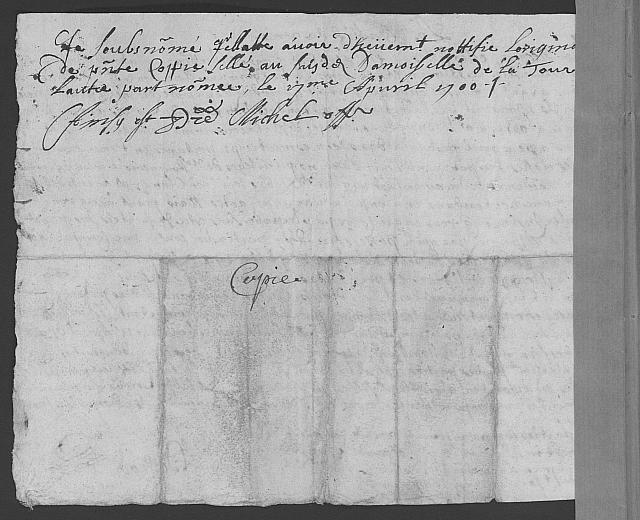 Je soubsnõmé Rellatte avoir dheüemt nottifié Lorigine
de pñte Coppie elle au susde Damoiselle de la Tour
Lautre part nõmee, le 17me Apvril 1700
Ainsy est Michel offr
Copie